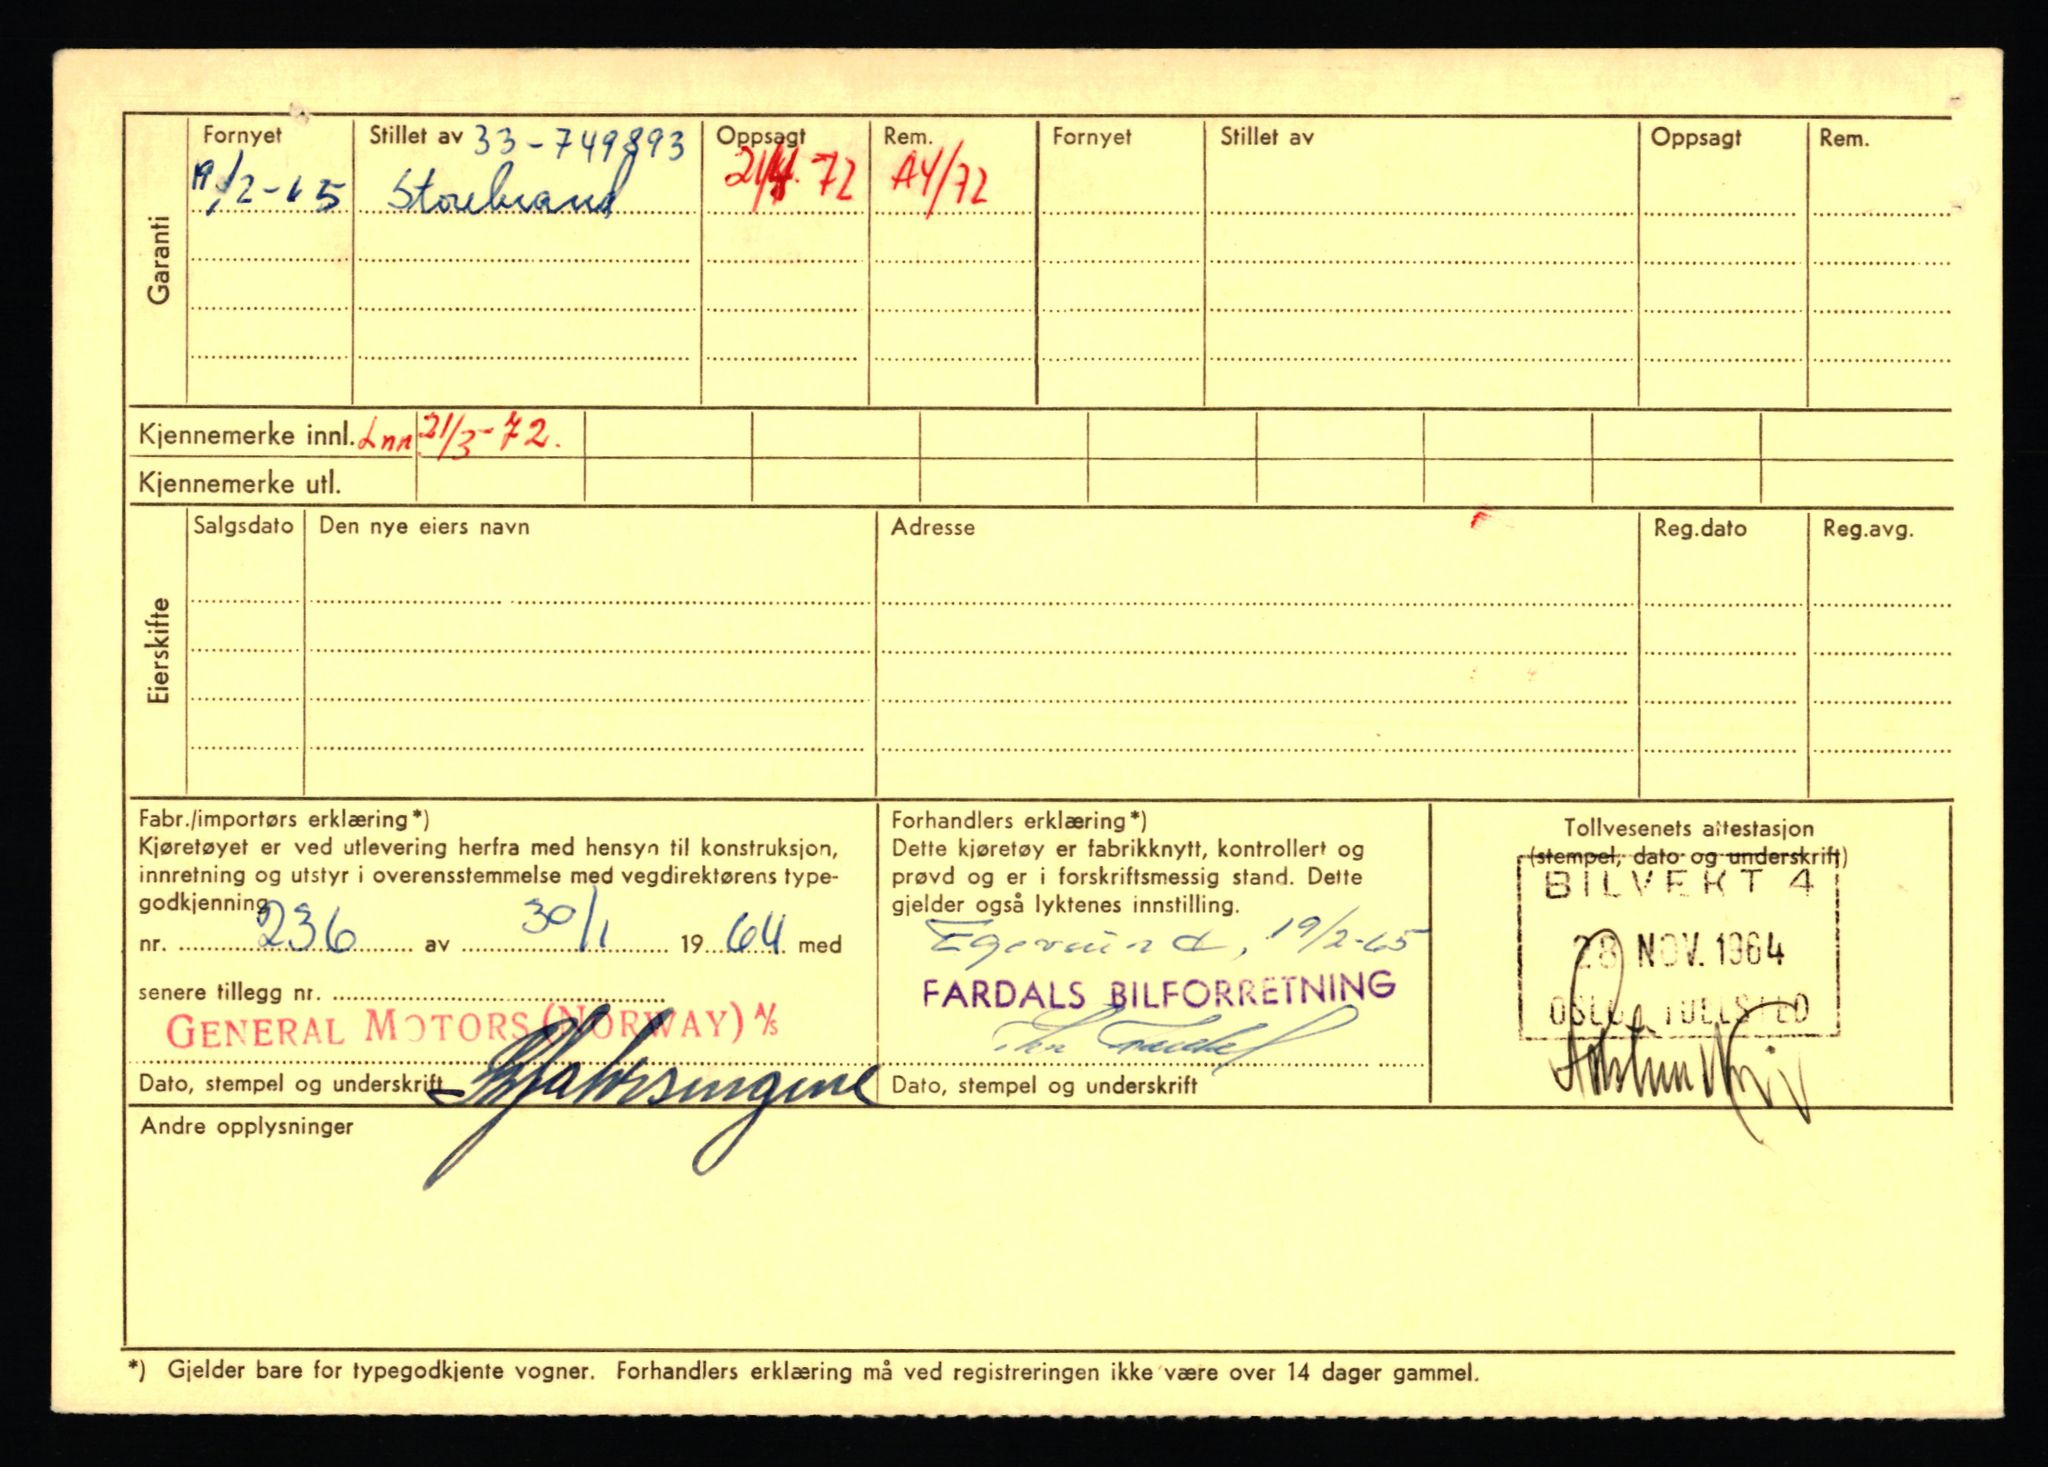 Garanti
Fornyet Stillet av 33-749893 Oppsagt Rem. Fornyet Stillet av Oppsagt Rem.
19/2-65 Storebrand 72 A4/72
Kjennemerke innl. Inn 21/3-72.
Kjennemerke utl.
Eierskifte
Salgsdato Den nye eiers navn Adresse Reg.dato Reg.avg.
Fabr./importørs erklæring*)
Kjøretøyet er ved utlevering herfra med hensyn til konstruksjon,
innretning og utstyr i overensstemmelse med vegdirektørens type-
godkjenning
nr. 236 av 30/1 1964 med
senere tillegg nr.
GENERAL MOTORS (NORWAY) A/S
Dato, stempel og underskrift
Forhandlers erklæring*)
Dette kjøretøy er fabrikknytt, kontrollert og
prøvd og er i forskriftsmessig stand. Dette
gjelder også lyktenes innstilling.
Egersund, 19/2-65
FARDALS BILFORRETNING
Dato, stempel og underskrift
Tollvesenets attestasjon
(stempel, dato og underskrift)
BILVEKT 4
28 NOV. 1964
OSLO TOLLSTED
Andre opplysninger
*) Gjelder bare for typegodkjente vogner. Forhandlers erklæring må ved registreringen ikke være over 14 dager gammel.